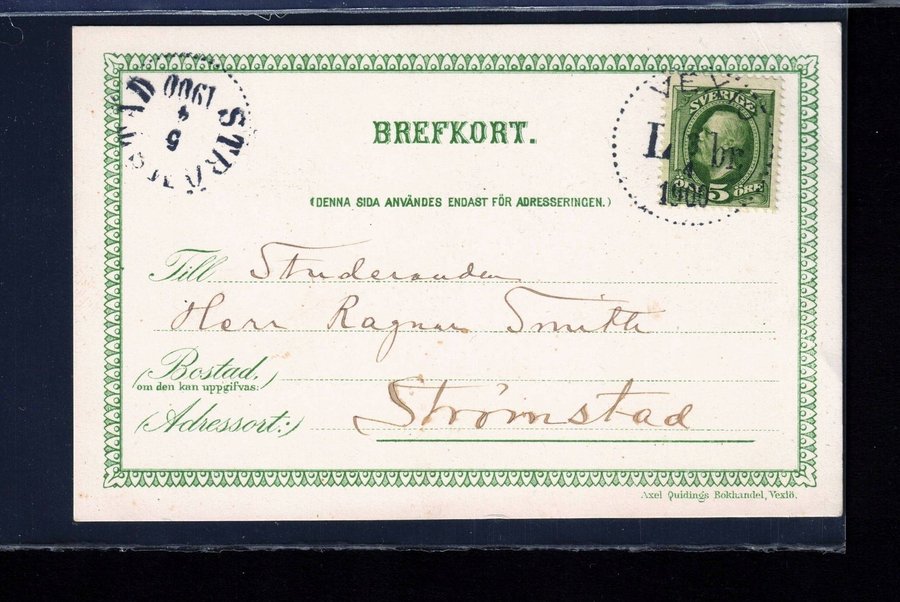 STRÖMSTAD
5
4
1900
VEXIÖ
LBr
4
1900
SVERIGE
5 ÖRE
BREFKORT.
(DENNA SIDA ANVÄNDES ENDAST FÖR ADRESSERINGEN.)
Till Studeranden
Herr Ragnar Smith
(Bostad,
om den kan uppgifvas:)
(Adressort:) Strømstad
Axel Quidings Bokhandel, Vexiö.